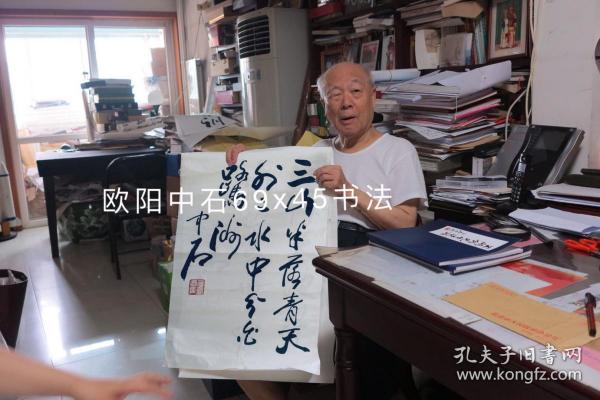 欧阳中石69x45书法
三山半落青天
外水中分白
鹭洲
中石
孔夫子旧书网
www.kongfz.com